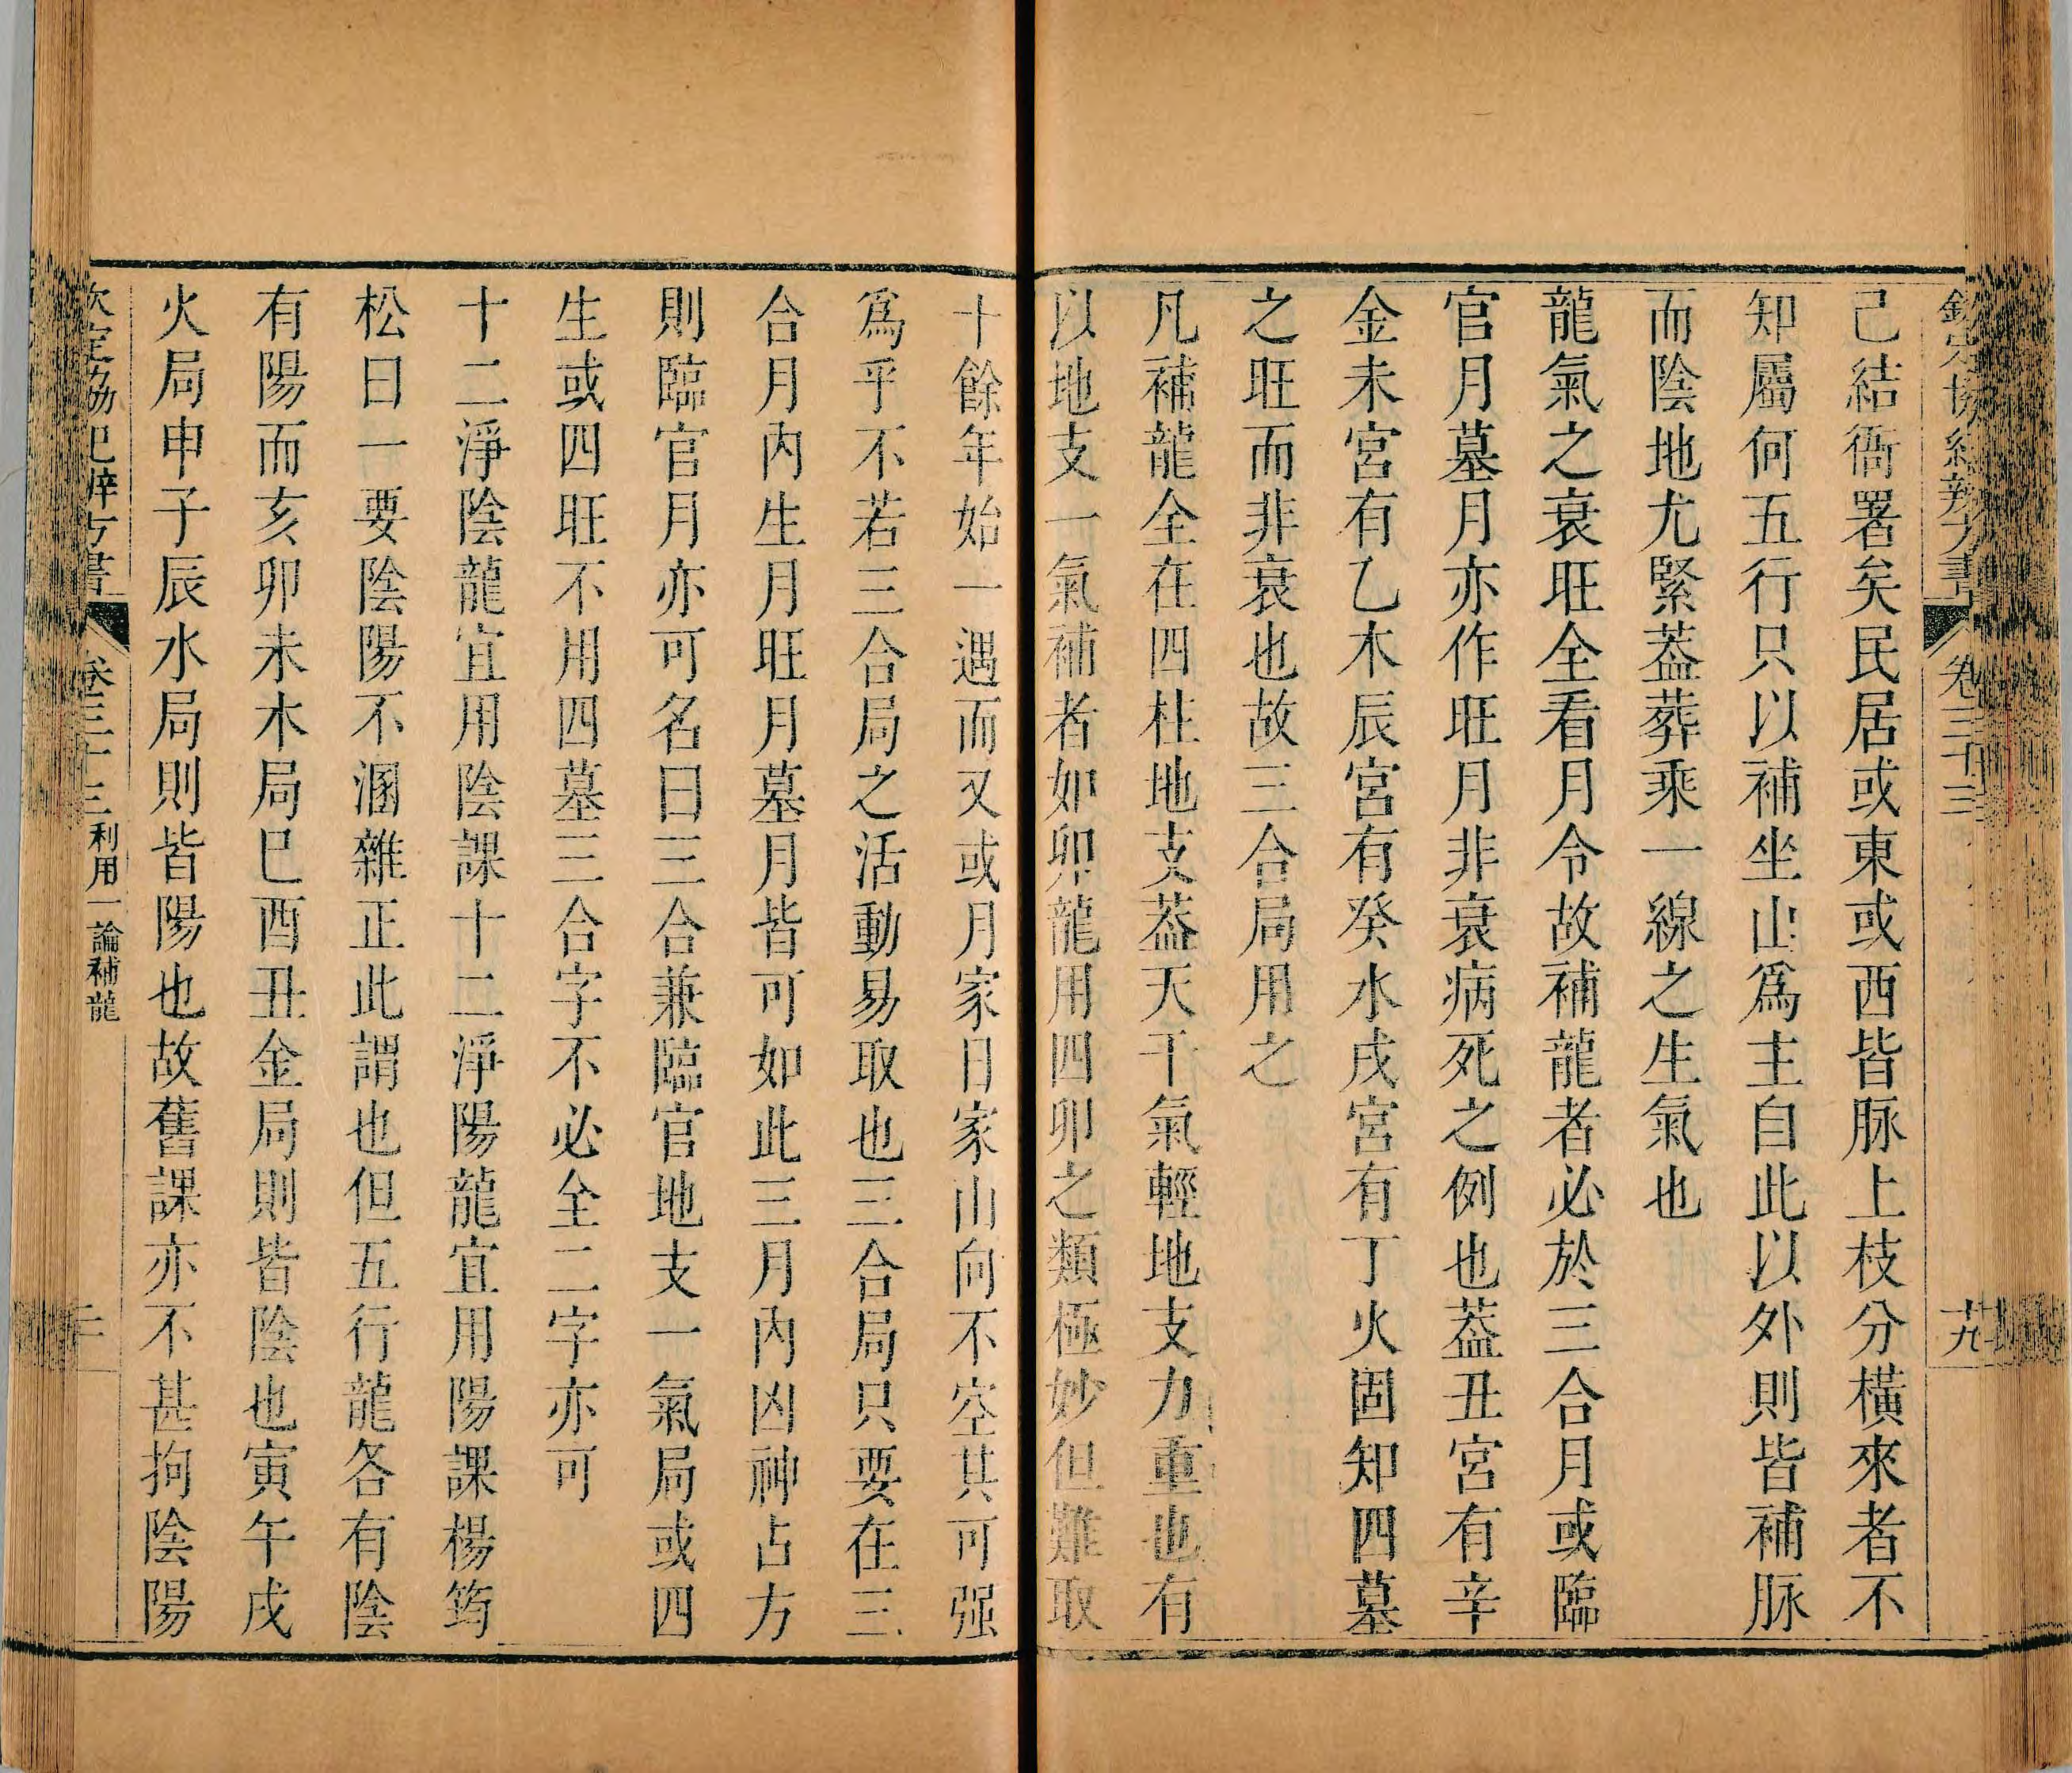 欽定協紀辨方書 卷三十三 十九
己結衙署矣民居或東或西皆脉上枝分橫來者不
知屬何五行只以補坐山爲主自此以外則皆補脈
而陰地尤緊葢葬乘一線之生氣也
龍氣之衰旺全看月令故補龍者必於三合月或臨
官月墓月亦作旺月非衰病死之例也葢丑宮有辛
金未宮有乙木辰宮有癸水戌宮有丁火固知四墓
之旺而非衰也故三合局用之
凡補龍全在四柱地支葢天干氣輕地支力重也有
以地支一氣補者如卯龍用四卯之類極妙但難取
十餘年始一遇而又或月家日家山向不空其可强
爲乎不若三合局之活動易取也三合局只要在三
合月內生月旺月墓月皆可如此三月內凶神占方
則臨官月亦可名曰三合兼臨官地支一氣局或四
生或四旺不用四墓三合字不必全二字亦可
十二淨陰龍宜用陰課十二淨陽龍宜用陽課楊筠
松曰一要陰陽不溷雜正此謂也但五行龍各有陰
有陽而亥卯未木局巳酉丑金局則皆陰也寅午戌
火局申子辰水局則皆陽也故舊課亦不甚拘陰陽
欽定協紀辨方書 卷三十三 利用一論補龍 二十